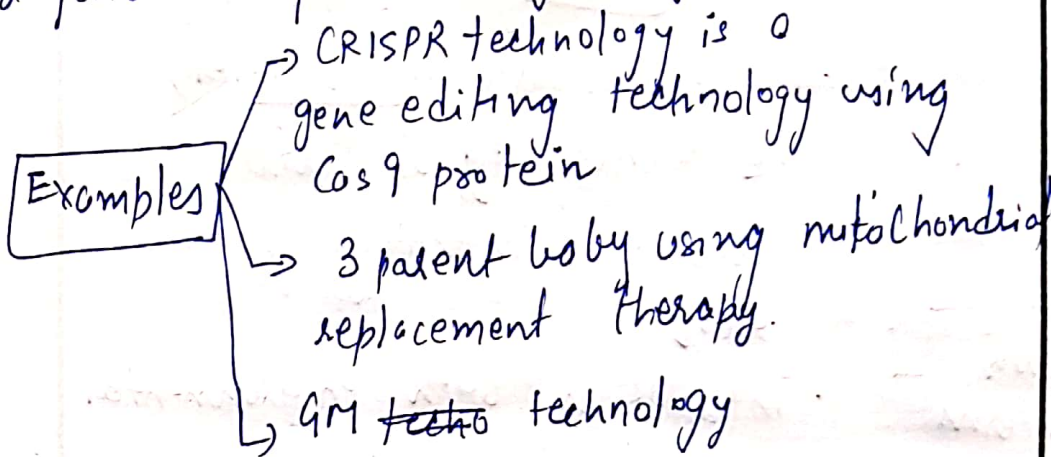 CRISPR technology is a
gene editing technology using
Cas 9 protein
Examples
3 parent baby using mitochondrial
replacement therapy.
GM technology